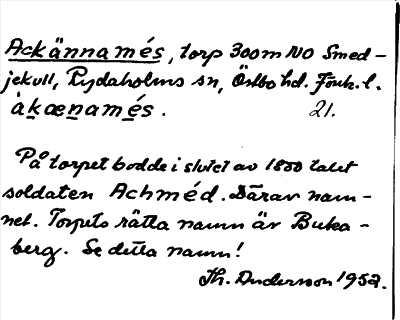 Ackännamés, torp 300m NO Smed-
jekull, Rydaholms sn, Östbo hd. Jönk. l.
àkænamés. 21.
På torpet bodde i slutet av 1800 talet
soldaten Achméd. Därav nam-
net. Torpets rätta namn är Buka-
berg. Se detta namn!
Th. Andersson 1952.